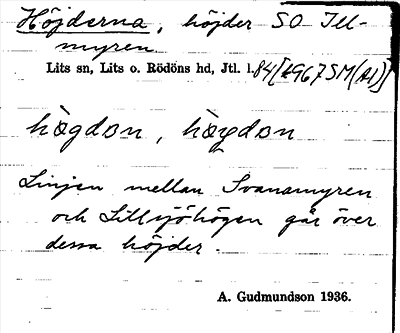 Höjderna, höjder SO Ill-
myren
Lits sn, Lits o. Rödöns hd, Jtl. l. 84[1967 SM(AI)]
hògdon, hògdon
Linjen mellan Svanamyren
och Lillsjöhögen går över
dessa höjder.
A. Gudmundson 1936.